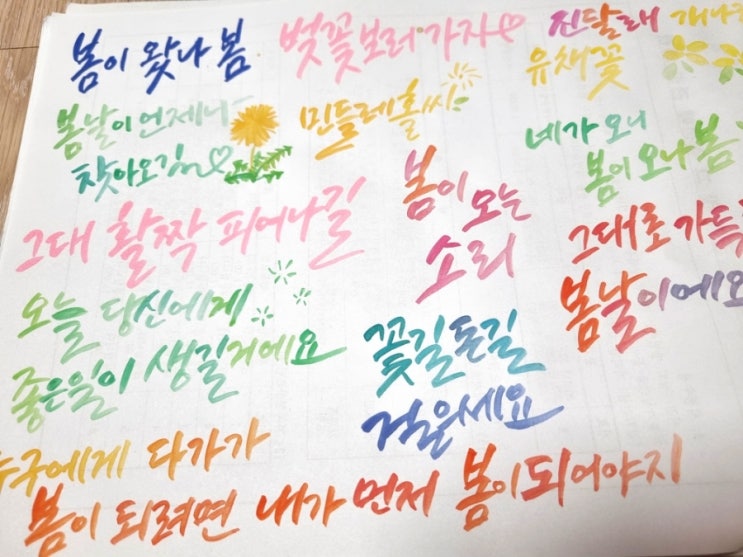 봄이 왔나 봄
벚꽃보러가자
진달래
유채꽃
봄날이언제나
찾아오길
민들레홀씨
네가 오니
봄이 오나봄
봄이 오는
소리
그대 활짝 피어나길
그대로 가득
봄날이에요
오늘 당신에게
좋은일이 생길거에요
꽃길돈길
걸을세요
누구에게 다가가
봄이 되려면 내가 먼저 봄이되어야지